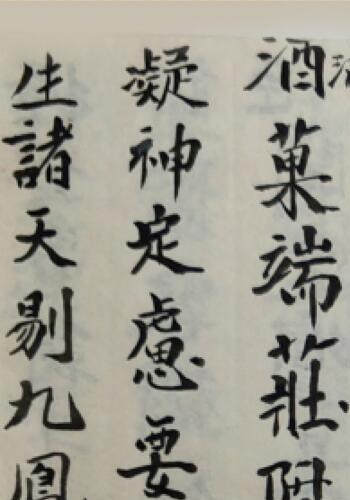 酒菓端莊
凝神定慮要
生諸天剔九鳳